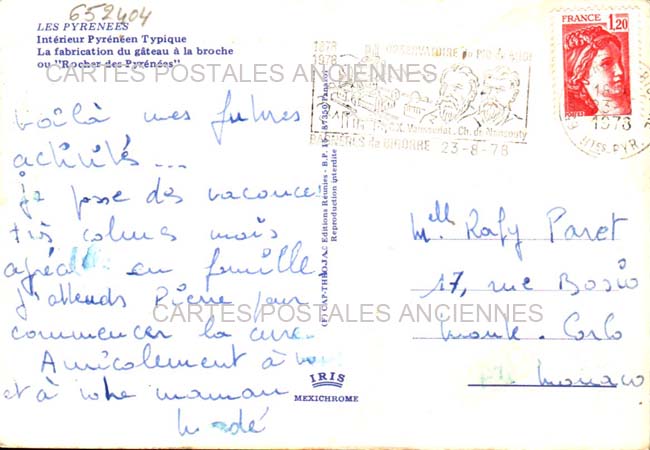 652404
LES PYRENEES
Intérieur Pyrénéen Typique
La fabrication du gâteau à la broche
ou "Rocher des Pyrénées"
CARTES POSTALES ANCIENNES
Voilà mes futures
activités...
je passe des vacances
très calmes mais
agréables en famille
J'attends Pierre pour
commencer la cure.
Amicalement à vous
et à votre maman
1878
1978
OBSERVATOIRE du PIC du MIDI
Ch. de Nansouty
BAGNERES de BIGORRE 23-8-78
FRANCE
1,20
1978
Htes PYR.
Reproduction interdite
Melle Rafy Paret
17, rue Bosio
Monte-Carlo
Monaco
CARTES POSTALES ANCIENNES
IRIS
MEXICHROME